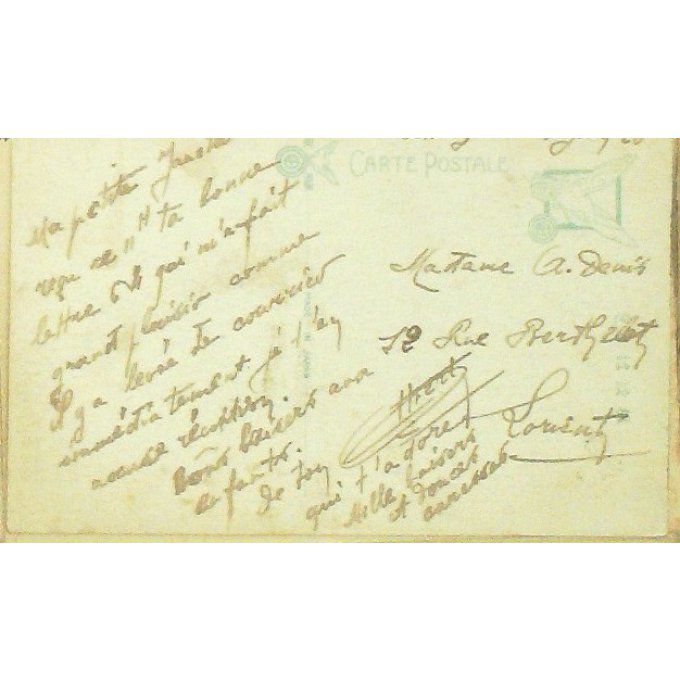 CARTE POSTALE
Ma petite
reçu ce " " ta bonne
lettre qui m'a fait
grand plaisir comme
Il y a levée de courrier
immédiatement je t'en
accuse réception.
Bons baisers aux
enfants.
de ton
qui t'adore
Mille baisers
et douces
caresses
Madame A. Denis
12 Rue Berthelot
Lorient